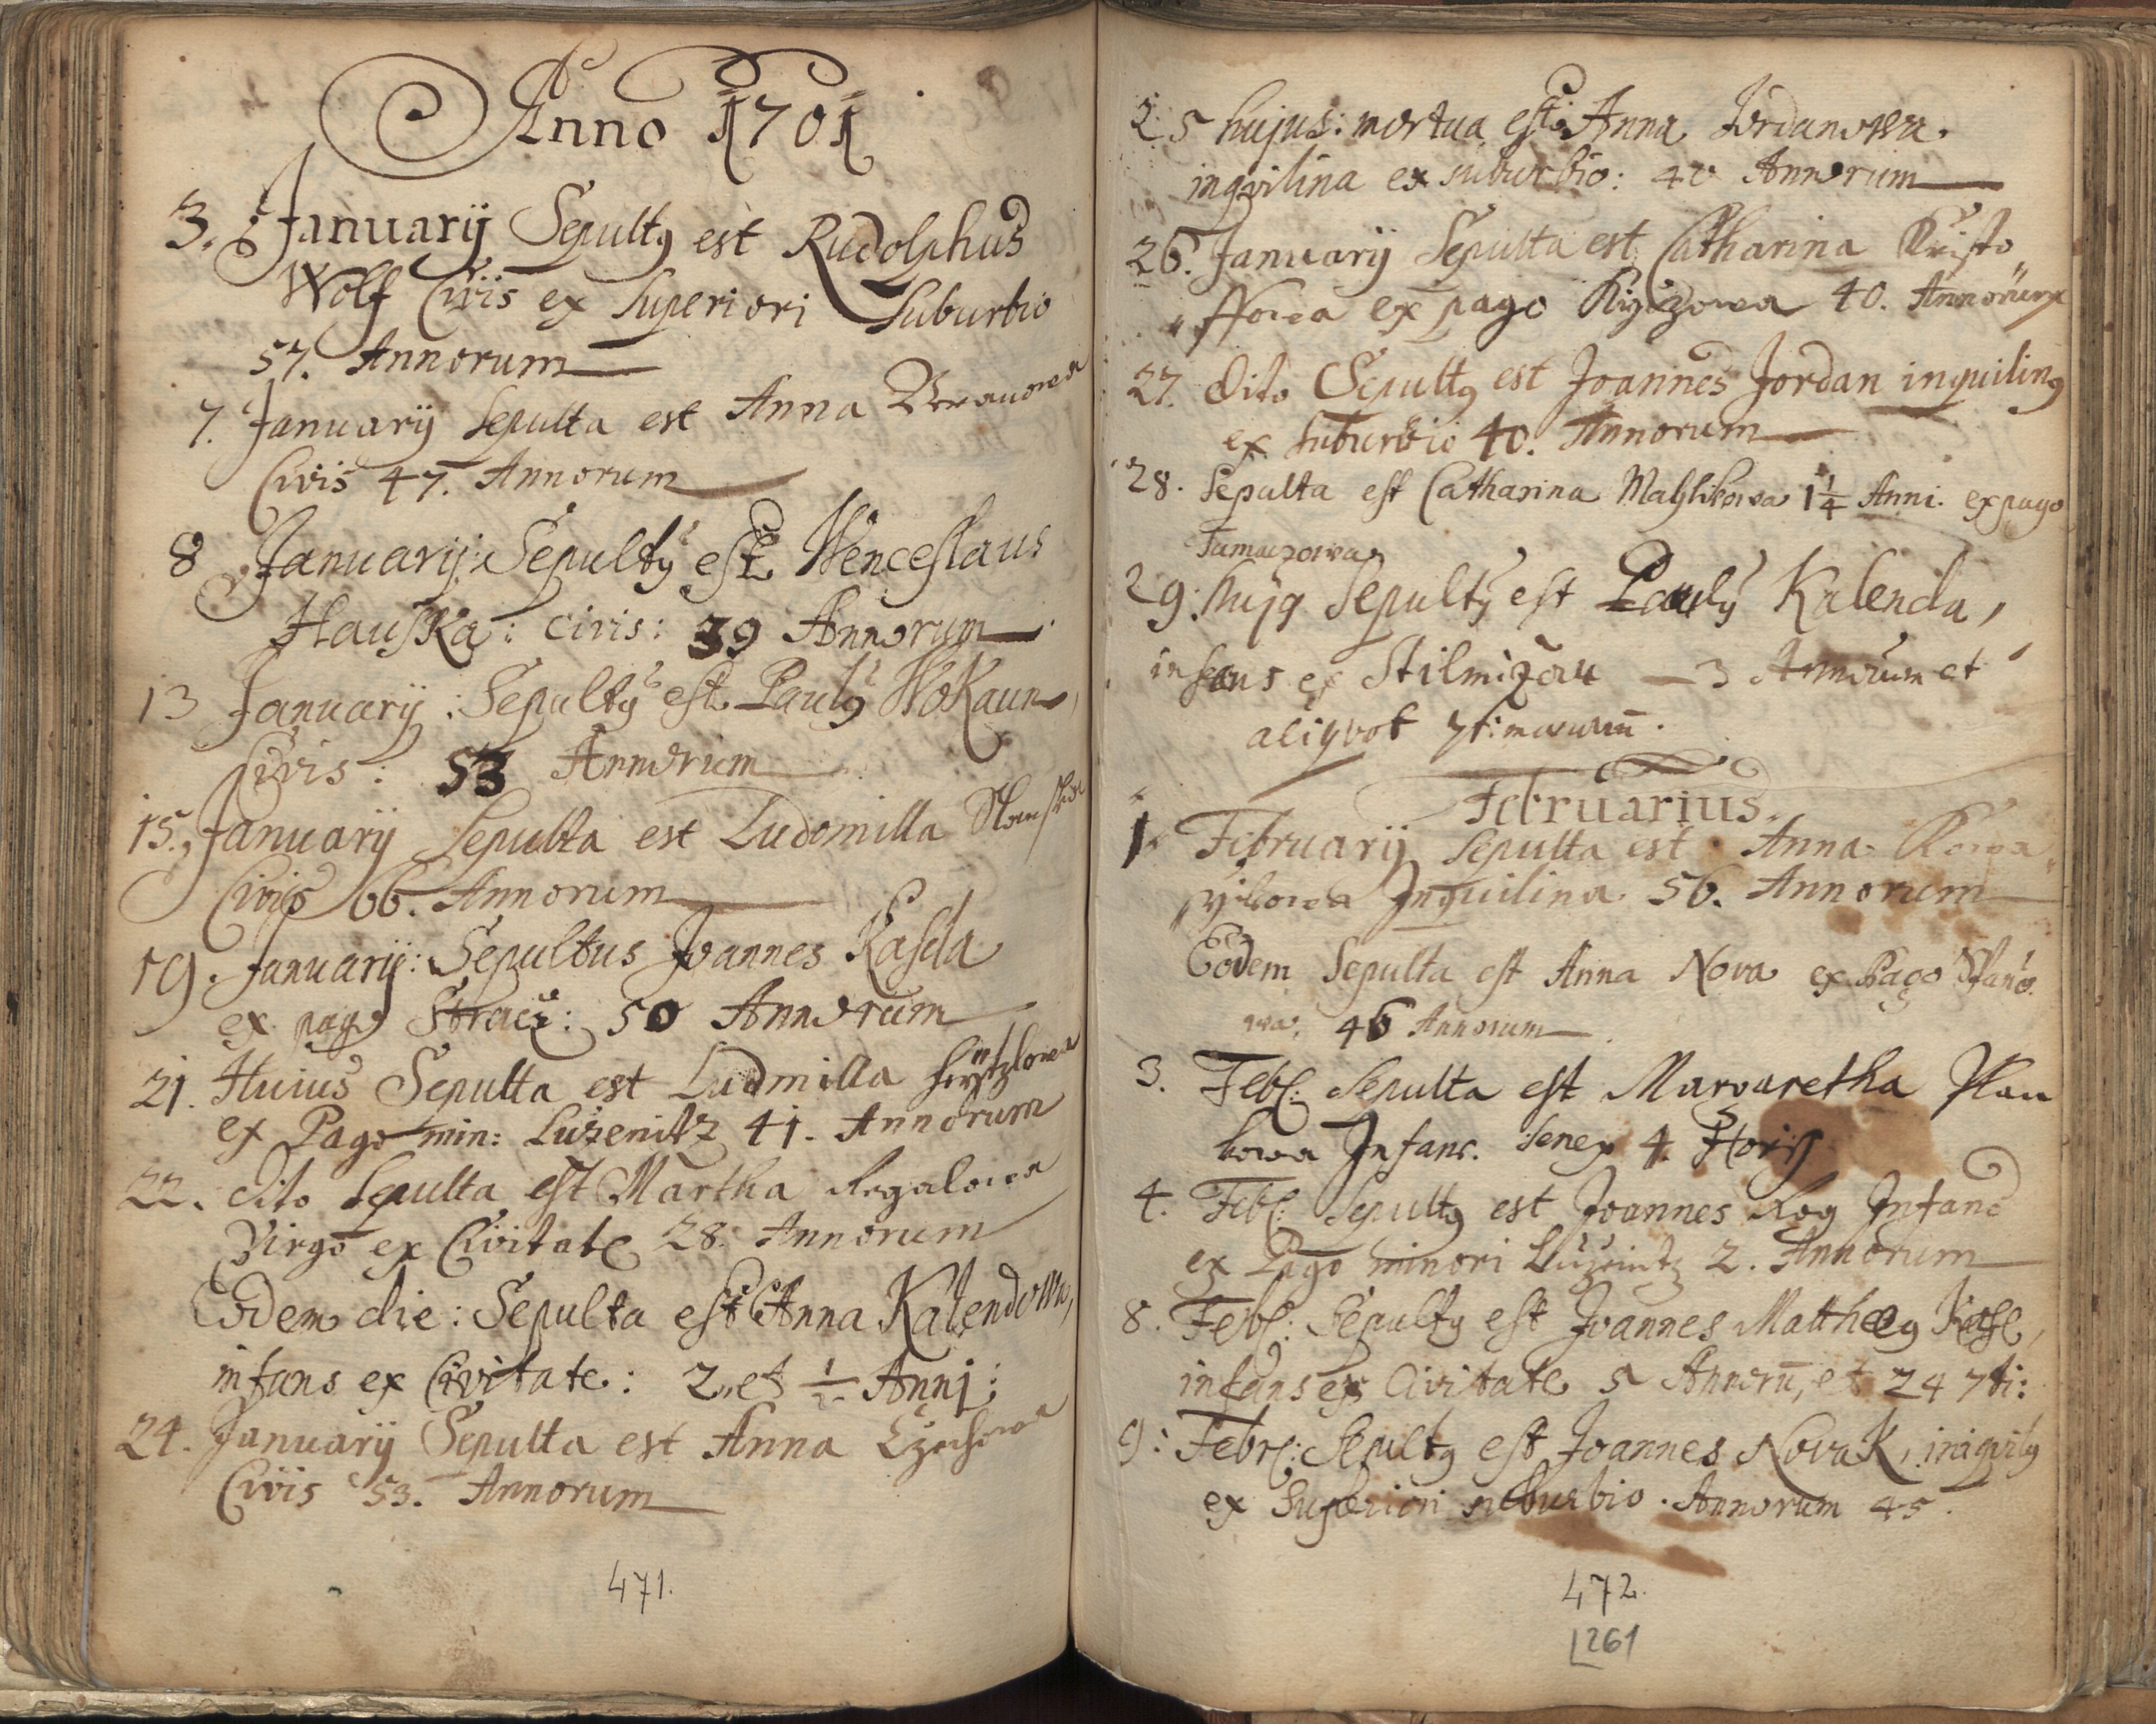 Anno 1701
3. Januarij Sepultg est Rudolphus
Wolf Civis ex Superiori Suburbio
57. Annorum
7. Januarij Sepulta est Anna
Civis 47. Annorum
8 Januarij: Sepultg est Wenceslaus
Hauska: civis: 39 Annorum
13 Januarij: Sepultg est Paulg Wokaun
Civis: 53 Annorum
15. Januarij Sepulta est Ludomilla
Civis 66. Annorum
19. Januarij: Sepultus Joannes Kasda
ex pago 50 Annorum
21. Huius Sepulta est Ludmilla
ex Pago min: Luzenitz 41. Annorum
22. dito Sepulta est Martha Regalowa
Virgo ex Civitate 28. Annorum
Eodem die: Sepulta est Anna Kalendowa,
infans ex Civitate: 2 et 1/2 Anni:
24. Januarij Sepulta est Anna
Civis 53. Annorum
471.
25 hujus: mortua est Anna Jordanowa.
inqvilina ex suburbio: 40 Annorum
26. Januarij Sepulta est Catharina Kristo
ffowa ex pago 40. Annorum
27. dito Sepultg est Joannes Jordan inquiling
ex suburbio 40. Annorum
28. Sepulta est Catharina 1 1/4 Anni. ex pago
29. hujg Sepultg est Paulg Kalenda,
infans ex Stilmizau 3 Annorum et
aliqvot
Februarius.
1. Februarij Sepulta est Anna
Inquilina 56. Annorum
Eodem Sepulta est Anna Nova ex Pago Stanĕ.
wa. 46 Annorum
3. Feb: Sepulta est Margaretha Plan
kowa Infans. Senex 4. Horis
4. Feb: Sepultg est Joannes Rog Infans
ex Pago minori Luzenitz 2. Annorum
8. Feb: Sepultg est Joannes Matthaeg
infans ex Civitate 5 Annorū, et 24 7ti:
9: Febr: Sepultg est Joannes Novak, inqvilg
ex Superiori suburbio. Annorum 45.
472.
261